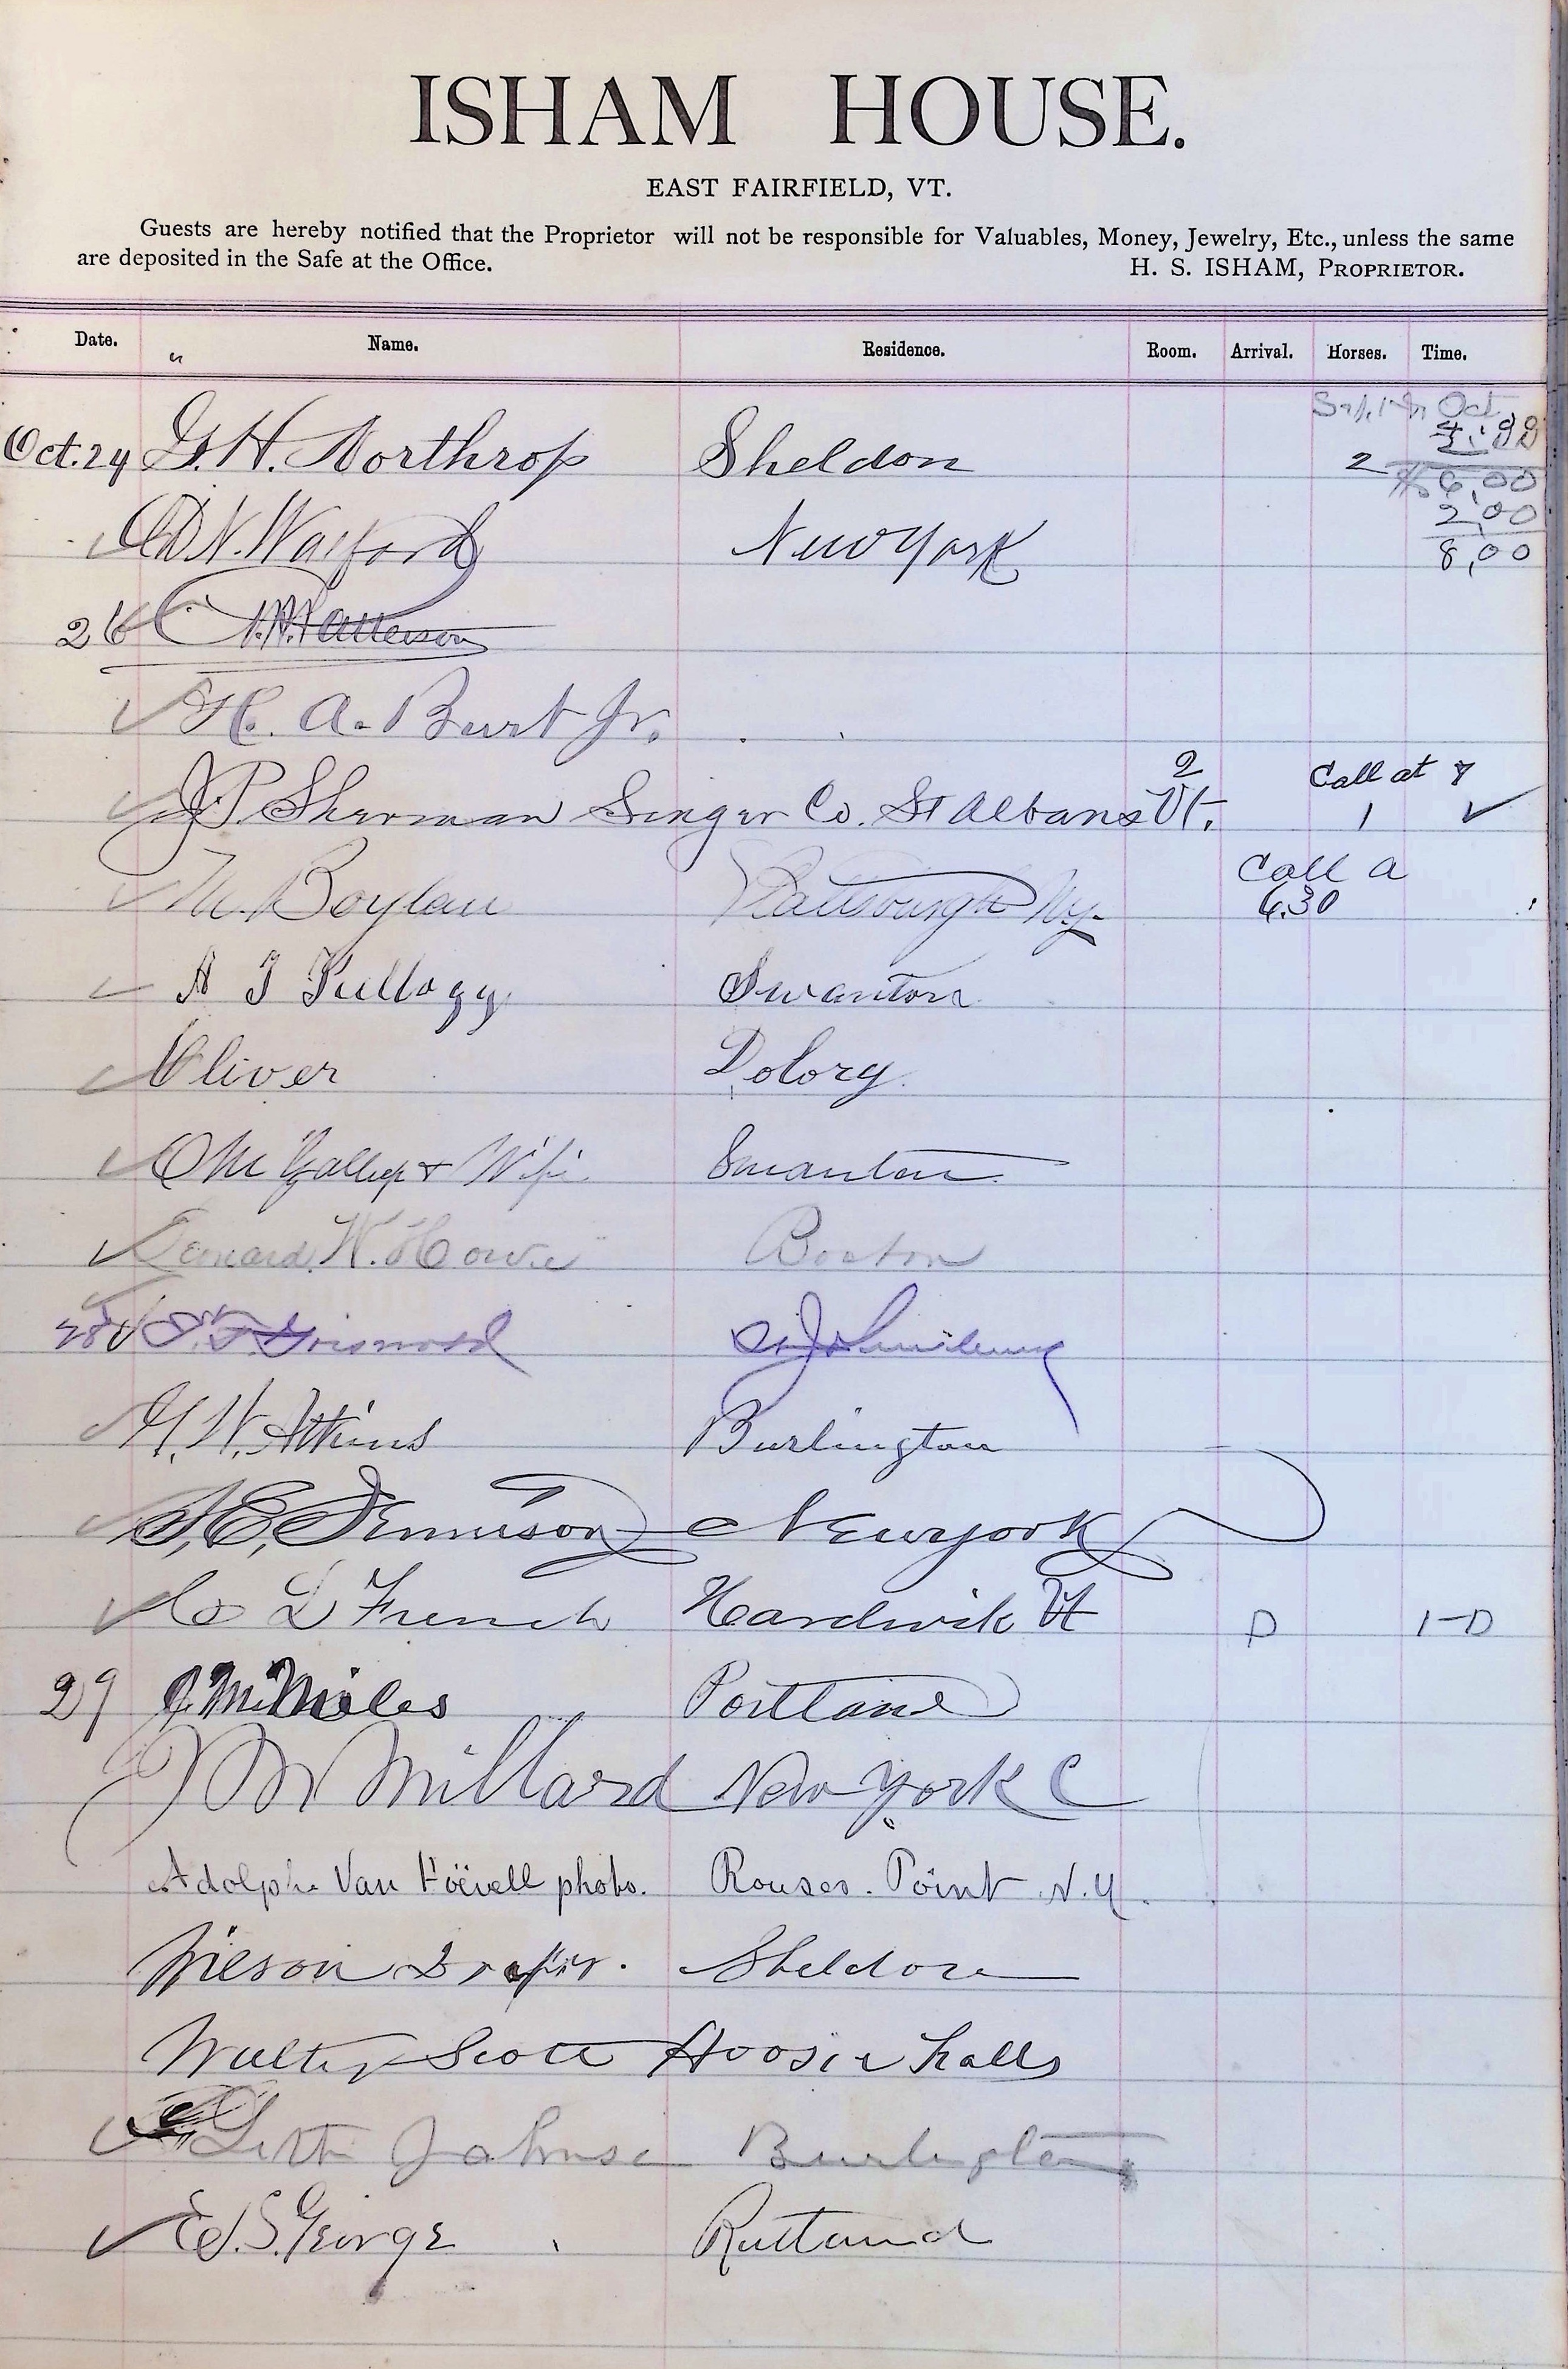 ISHAM HOUSE.
EAST FAIRFIELD, VT.
Guests are hereby notified that the Proprietor will not be responsible for Valuables, Money, Jewelry, Etc., unless the same
are deposited in the Safe at the Office.
H. S. ISHAM, PROPRIETOR.
Date. Name. Residence. Room. Arrival. Horses. Time.
Oct
Oct. 24 G. H. Northrop Sheldon 2 6,00
2,00
New York 8,00
26 Patterson
H. A. Burt Jr.
2 Call at 7
J. P. Sherman Singer Co. St Albans Vt. 1 ✓
M. Boylan Plattsburgh Ny. Call a
6.30
Kellogg Swanton
Oliver Dolory
Gallup & Wife Swanton
Leonard W. Howe Boston
28 Griswold St Johnsbury
Atkins Burlington
S, E, Dennison New york
C D French Hardwick Vt D 1-D
29 J. M. Miles Portland
Millard New York C
Adolphe Van photo. Rouses. Point N.Y.
Wilson Draper. Sheldon
Walter Scott Hoosic Falls
Johnson Burlington
Ed. S. George Rutland